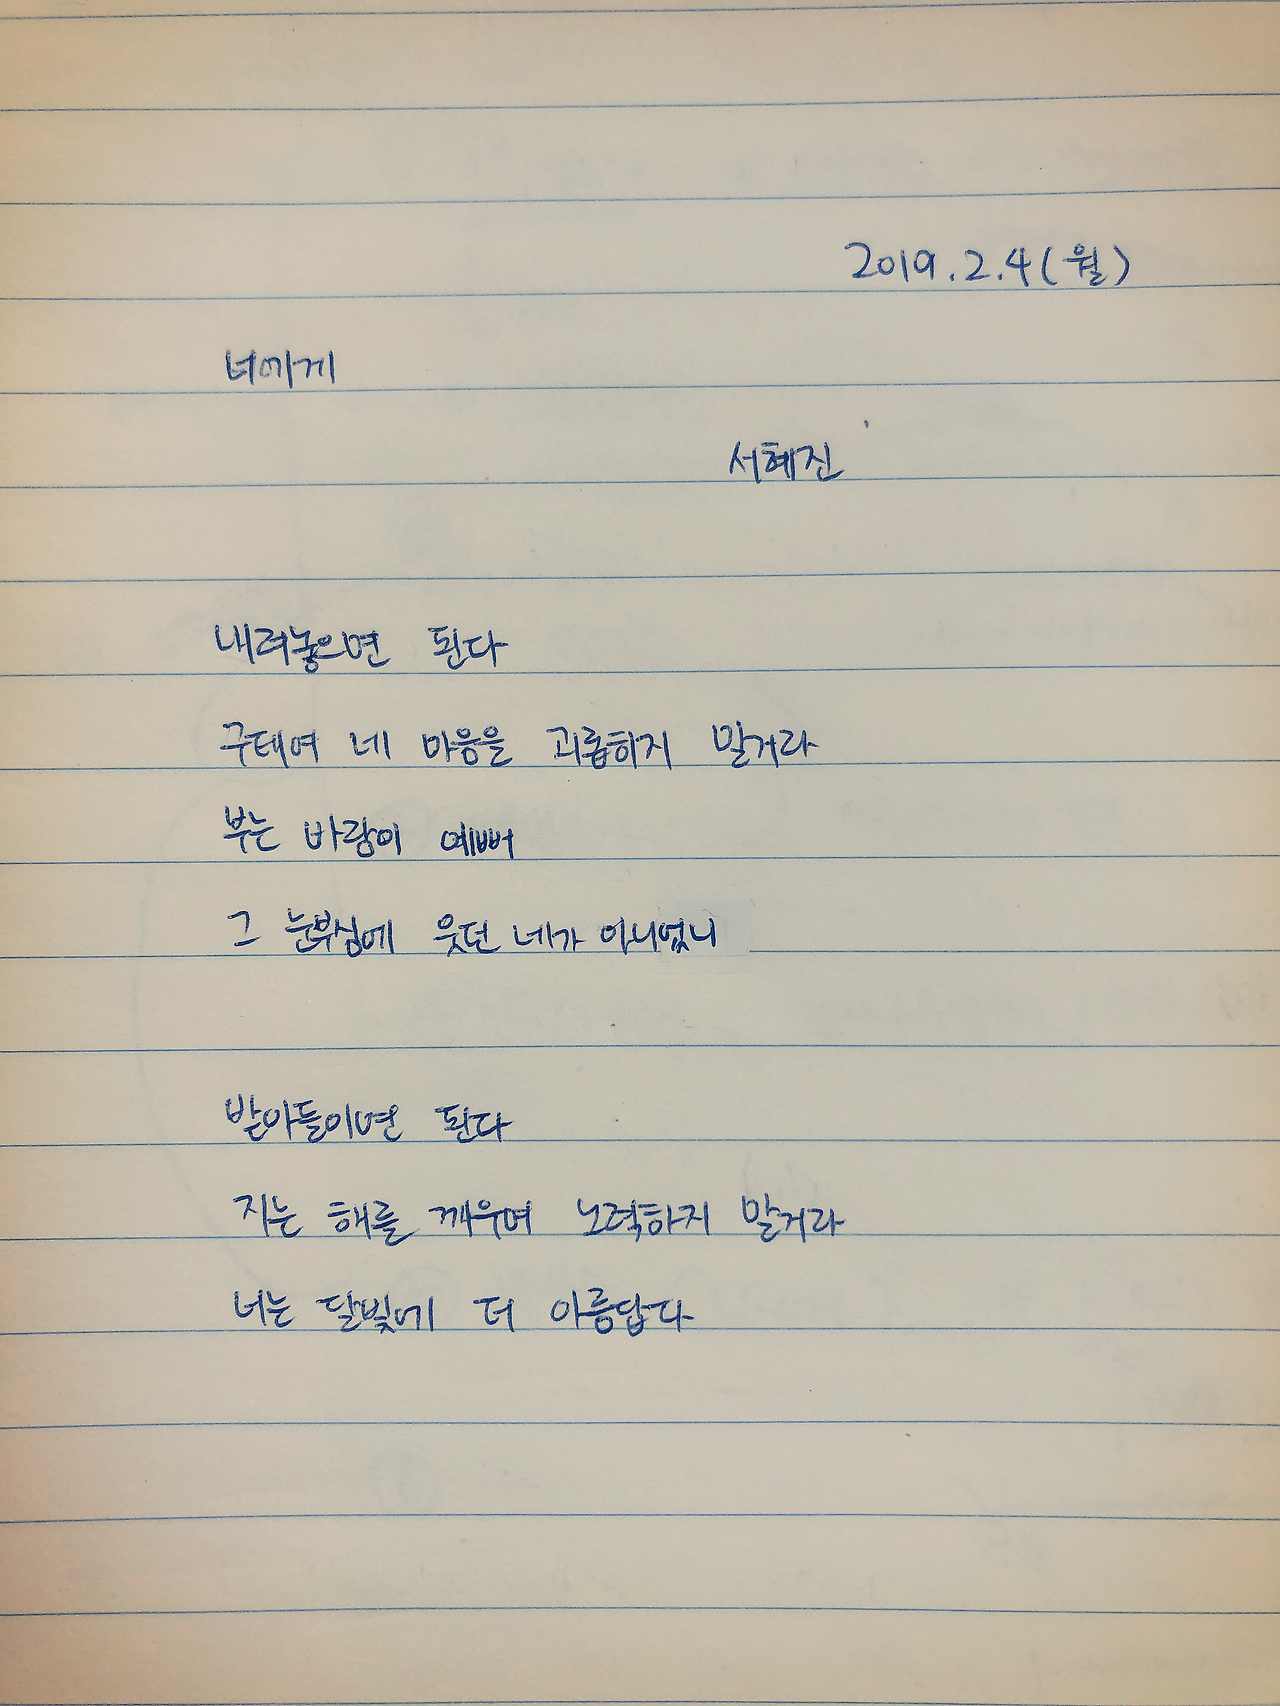 2019.2.4(월)
너에게
서혜진
내려놓으면 된다
구태여 네 마음을 괴롭히지 말거라
부는 바람이 예뻐
그 눈부심에 웃던 네가 아니었니
받아들이면 된다
지는 해를 깨우려 노력하지 말거라
너는 달빛에 더 아름답다